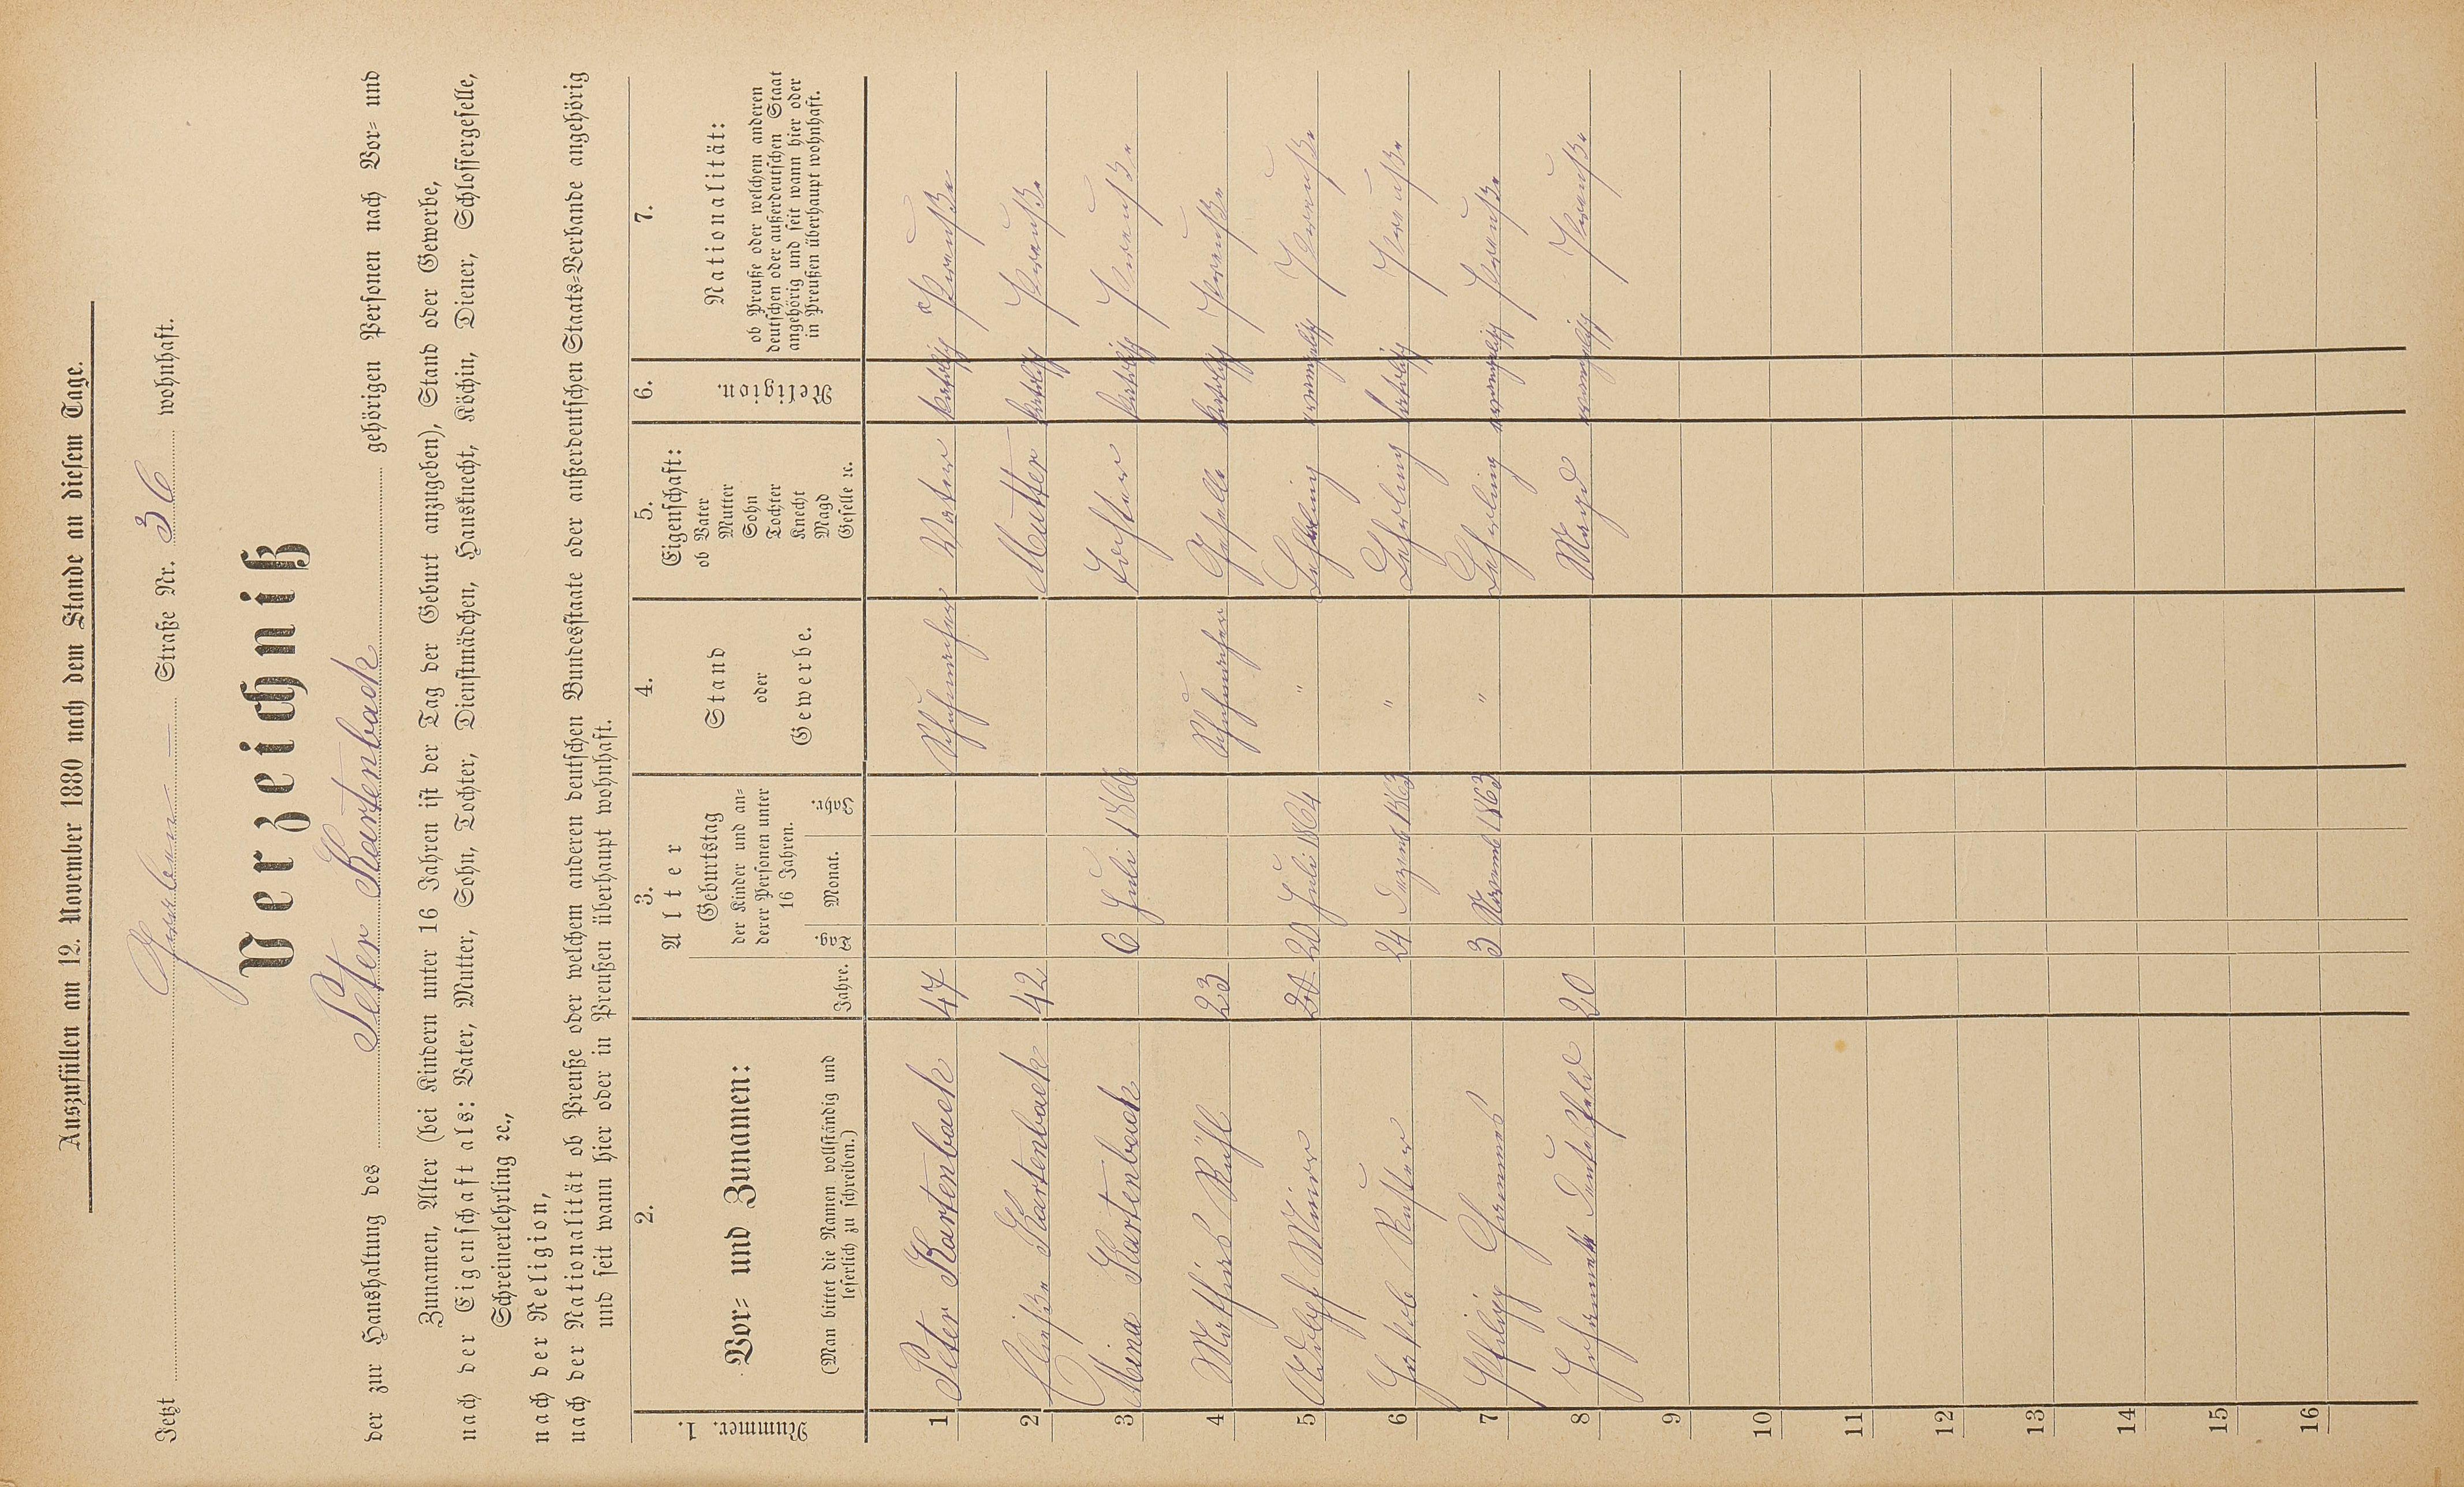 Auszufüllen am 12. November 1880 nach dem Stande an diesem Tage.
Jetzt — Straße Nr. 36 wohnhaft.
Verzeichniß
der zur Haushaltung des Peter Kartenback gehörigen Personen nach Vor- und
Zunamen, Alter (bei Kindern unter 16 Jahren ist der Tag der Geburt anzugeben), Stand oder Gewerbe,
nach der Eigenschaft als: Vater, Mutter, Sohn, Tochter, Dienstmädchen, Hausknecht, Köchin, Diener, Schlossergeselle,
Schreinerlehrling ꝛc.,
nach der Religion,
nach der Nationalität ob Preuße oder welchem anderen deutschen Bundesstaate oder außerdeutschen Staats-Verbande angehörig
und seit wann hier oder in Preußen überhaupt wohnhaft.
1. Nummer.
2. Vor- und Zunamen:
(Man bittet die Namen vollständig und
leserlich zu schreiben.)
3. Alter
Jahre.
Geburtstag
der Kinder und an-
derer Personen unter
16 Jahren.
Tag. Monat. Jahr.
4. Stand
oder
Gewerbe.
5. Eigenschaft:
ob Vater
Mutter
Sohn
Tochter
Knecht
Magd
Geselle ꝛc.
6. Religion.
7. Nationalität:
ob Preuße oder welchem anderen
deutschen oder außerdeutschen Staat
angehörig und seit wann hier oder
in Preußen überhaupt wohnhaft.
1 Peter Kartenback 47 Schuhmacher Vater katholisch Preuße
2 Kartenback 42 Mutter katholisch Preuße
3 Mina Kartenback 6 Juli 1866 Tochter katholisch Preuße
4 Mathias Rühl 23 Schuhmacher Geselle katholisch Preuße
5 Adolph 20 20 Juli 1864 " Lehrling evangelisch Preuße
6 Jakob 24 Dezemb 1863 " Lehrling katholisch Preuße
7 Philipp 3 Novemb 1863 " Lehrling evangelisch Preuße
8 20 Magd evangelisch Preuße
9
10
11
12
13
14
15
16